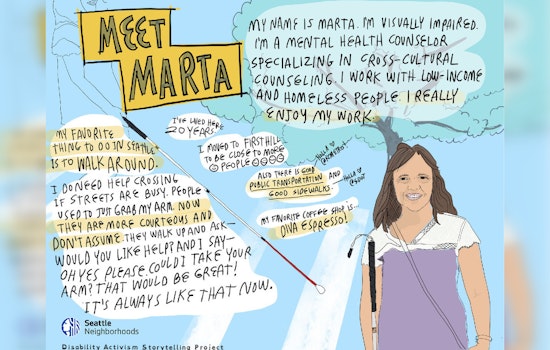 MEET
MARTA
MY NAME IS MARTA. I'M VISUALLY IMPAIRED.
I'M A MENTAL HEALTH COUNSELOR
SPECIALIZING IN CROSS-CULTURAL
COUNSELING. I WORK WITH LOW-INCOME
AND HOMELESS PEOPLE. I REALLY
ENJOY MY WORK.
I'VE LIVED HERE
20 YEARS
MY FAVORITE
THING TO DO IN SEATTLE
IS TO WALK AROUND.
I MOVED TO FIRST HILL
TO BE CLOSE TO MORE
PEOPLE
ALSO THERE IS GOOD
PUBLIC TRANSPORTATION AND
GOOD SIDEWALKS.
HOLLA
HOLLA
MY FAVORITE COFFEE SHOP IS...
DIVA ESPRESSO!
I DO NEED HELP CROSSING
IF STREETS ARE BUSY. PEOPLE
USED TO JUST GRAB MY ARM. NOW
THEY ARE MORE COURTEOUS AND
DON'T ASSUME. THEY WALK UP AND ASK—
WOULD YOU LIKE HELP? AND I SAY—
OH YES PLEASE. COULD I TAKE YOUR
ARM? THAT WOULD BE GREAT!
IT'S ALWAYS LIKE THAT NOW.
Seattle
Neighborhoods
Disability Activism Storytelling Project